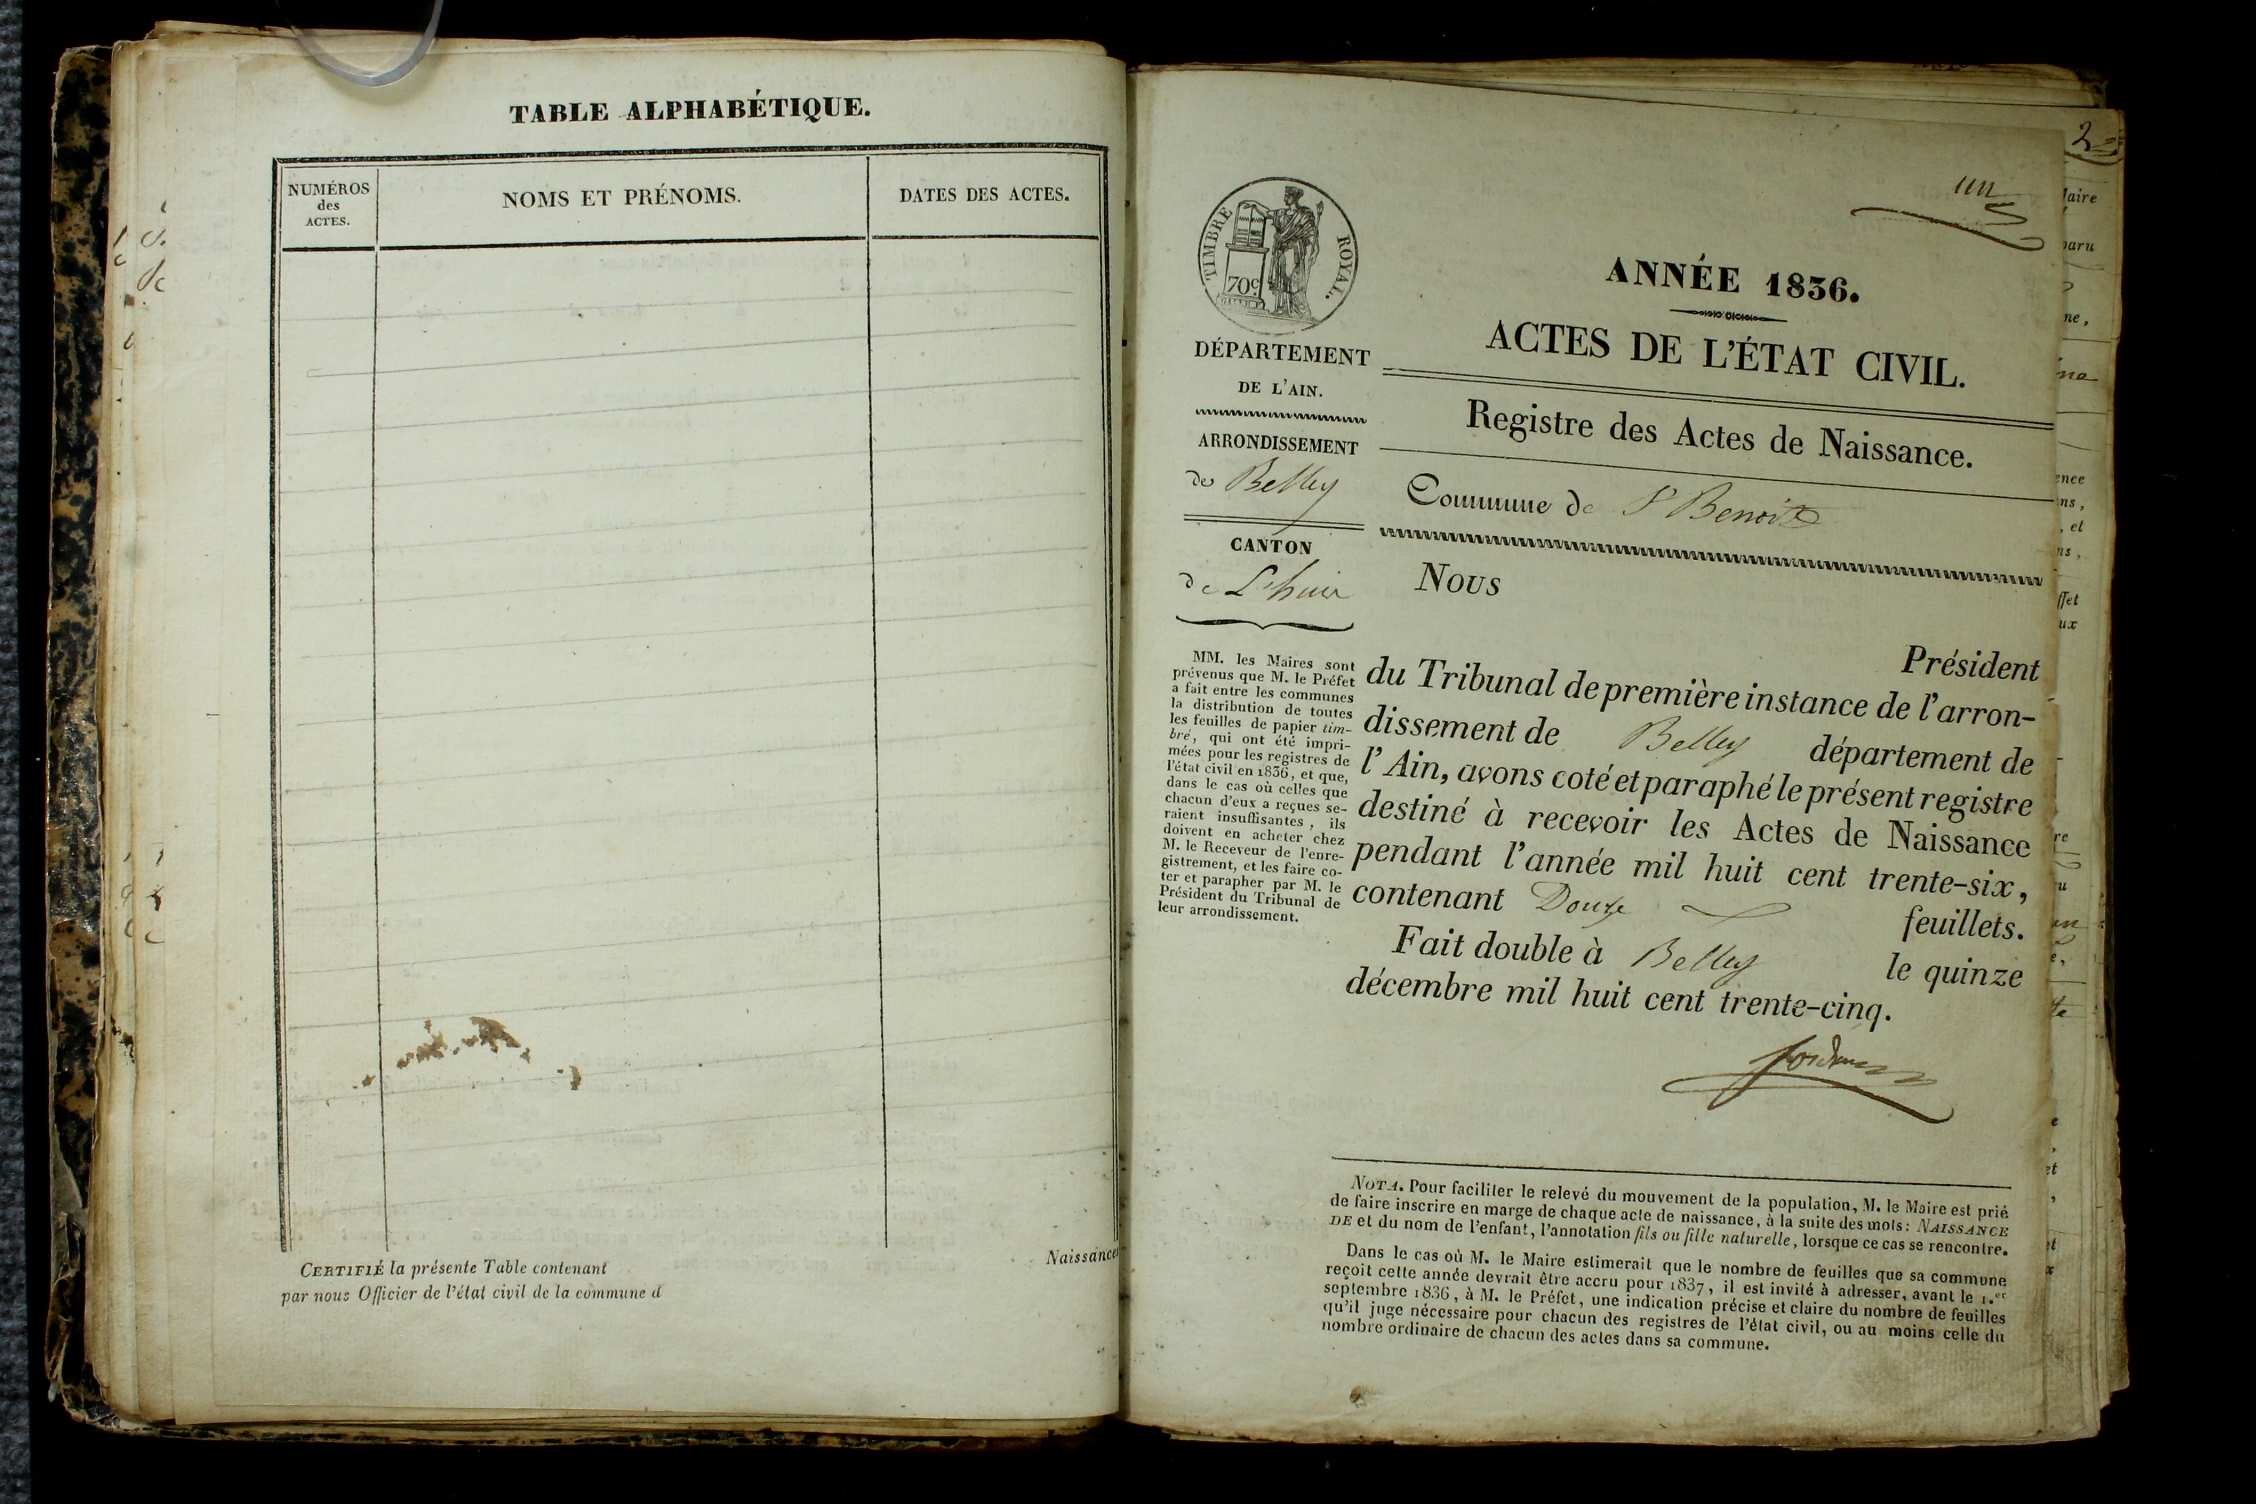 TABLE ALPHABÉTIQUE.
NUMÉROS
des
ACTES.
NOMS ET PRÉNOMS.
DATES DES ACTES.
CERTIFIÉ la présente Table contenant
Naissances
par nous Officier de l'état civil de la commune d
2
un
TIMBRE ROYAL.
70c.
ANNÉE 1836.
ACTES DE L'ÉTAT CIVIL.
DÉPARTEMENT
DE L'AIN.
Registre des Actes de Naissance.
ARRONDISSEMENT
de Belley
Commune de St Benoit
CANTON
de L'huis
Nous
Président
du Tribunal de première instance de l'arron-
dissement de Belley département de
l'Ain, avons coté et paraphé le présent registre
destiné à recevoir les Actes de Naissance
pendant l'année mil huit cent trente-six,
contenant Douze feuillets.
Fait double à Belley le quinze
décembre mil huit cent trente-cinq.
MM. les Maires sont
prévenus que M. le Préfet
a fait entre les communes
la distribution de toutes
les feuilles de papier tim-
bré, qui ont été impri-
mées pour les registres de
l'état civil en 1836, et que,
dans le cas où celles que
chacun d'eux a reçues se-
raient insuffisantes, ils
doivent en acheter chez
M. le Receveur de l'enre-
gistrement, et les faire co-
ter et parapher par M. le
Président du Tribunal de
leur arrondissement.
NOTA. Pour faciliter le relevé du mouvement de la population, M. le Maire est prié
de faire inscrire en marge de chaque acte de naissance, à la suite des mots: NAISSANCE
DE et du nom de l'enfant, l'annotation fils ou fille naturelle, lorsque ce cas se rencontre.
Dans le cas où M. le Maire estimerait que le nombre de feuilles que sa commune
reçoit cette année devrait être accru pour 1837, il est invité à adresser, avant le 1.er
septembre 1836, à M. le Préfet, une indication précise et claire du nombre de feuilles
qu'il juge nécessaire pour chacun des registres de l'état civil, ou au moins celle du
nombre ordinaire de chacun des actes dans sa commune.